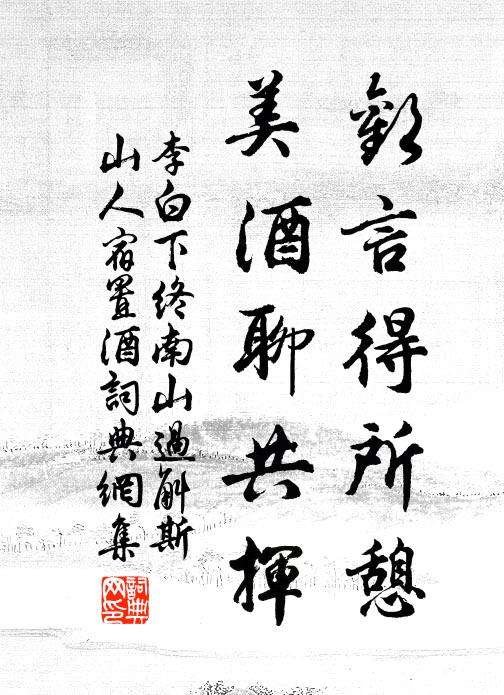 歡言得所憩
美酒聊共揮
李白下終南山過斛斯
山人宿置酒詞典網集